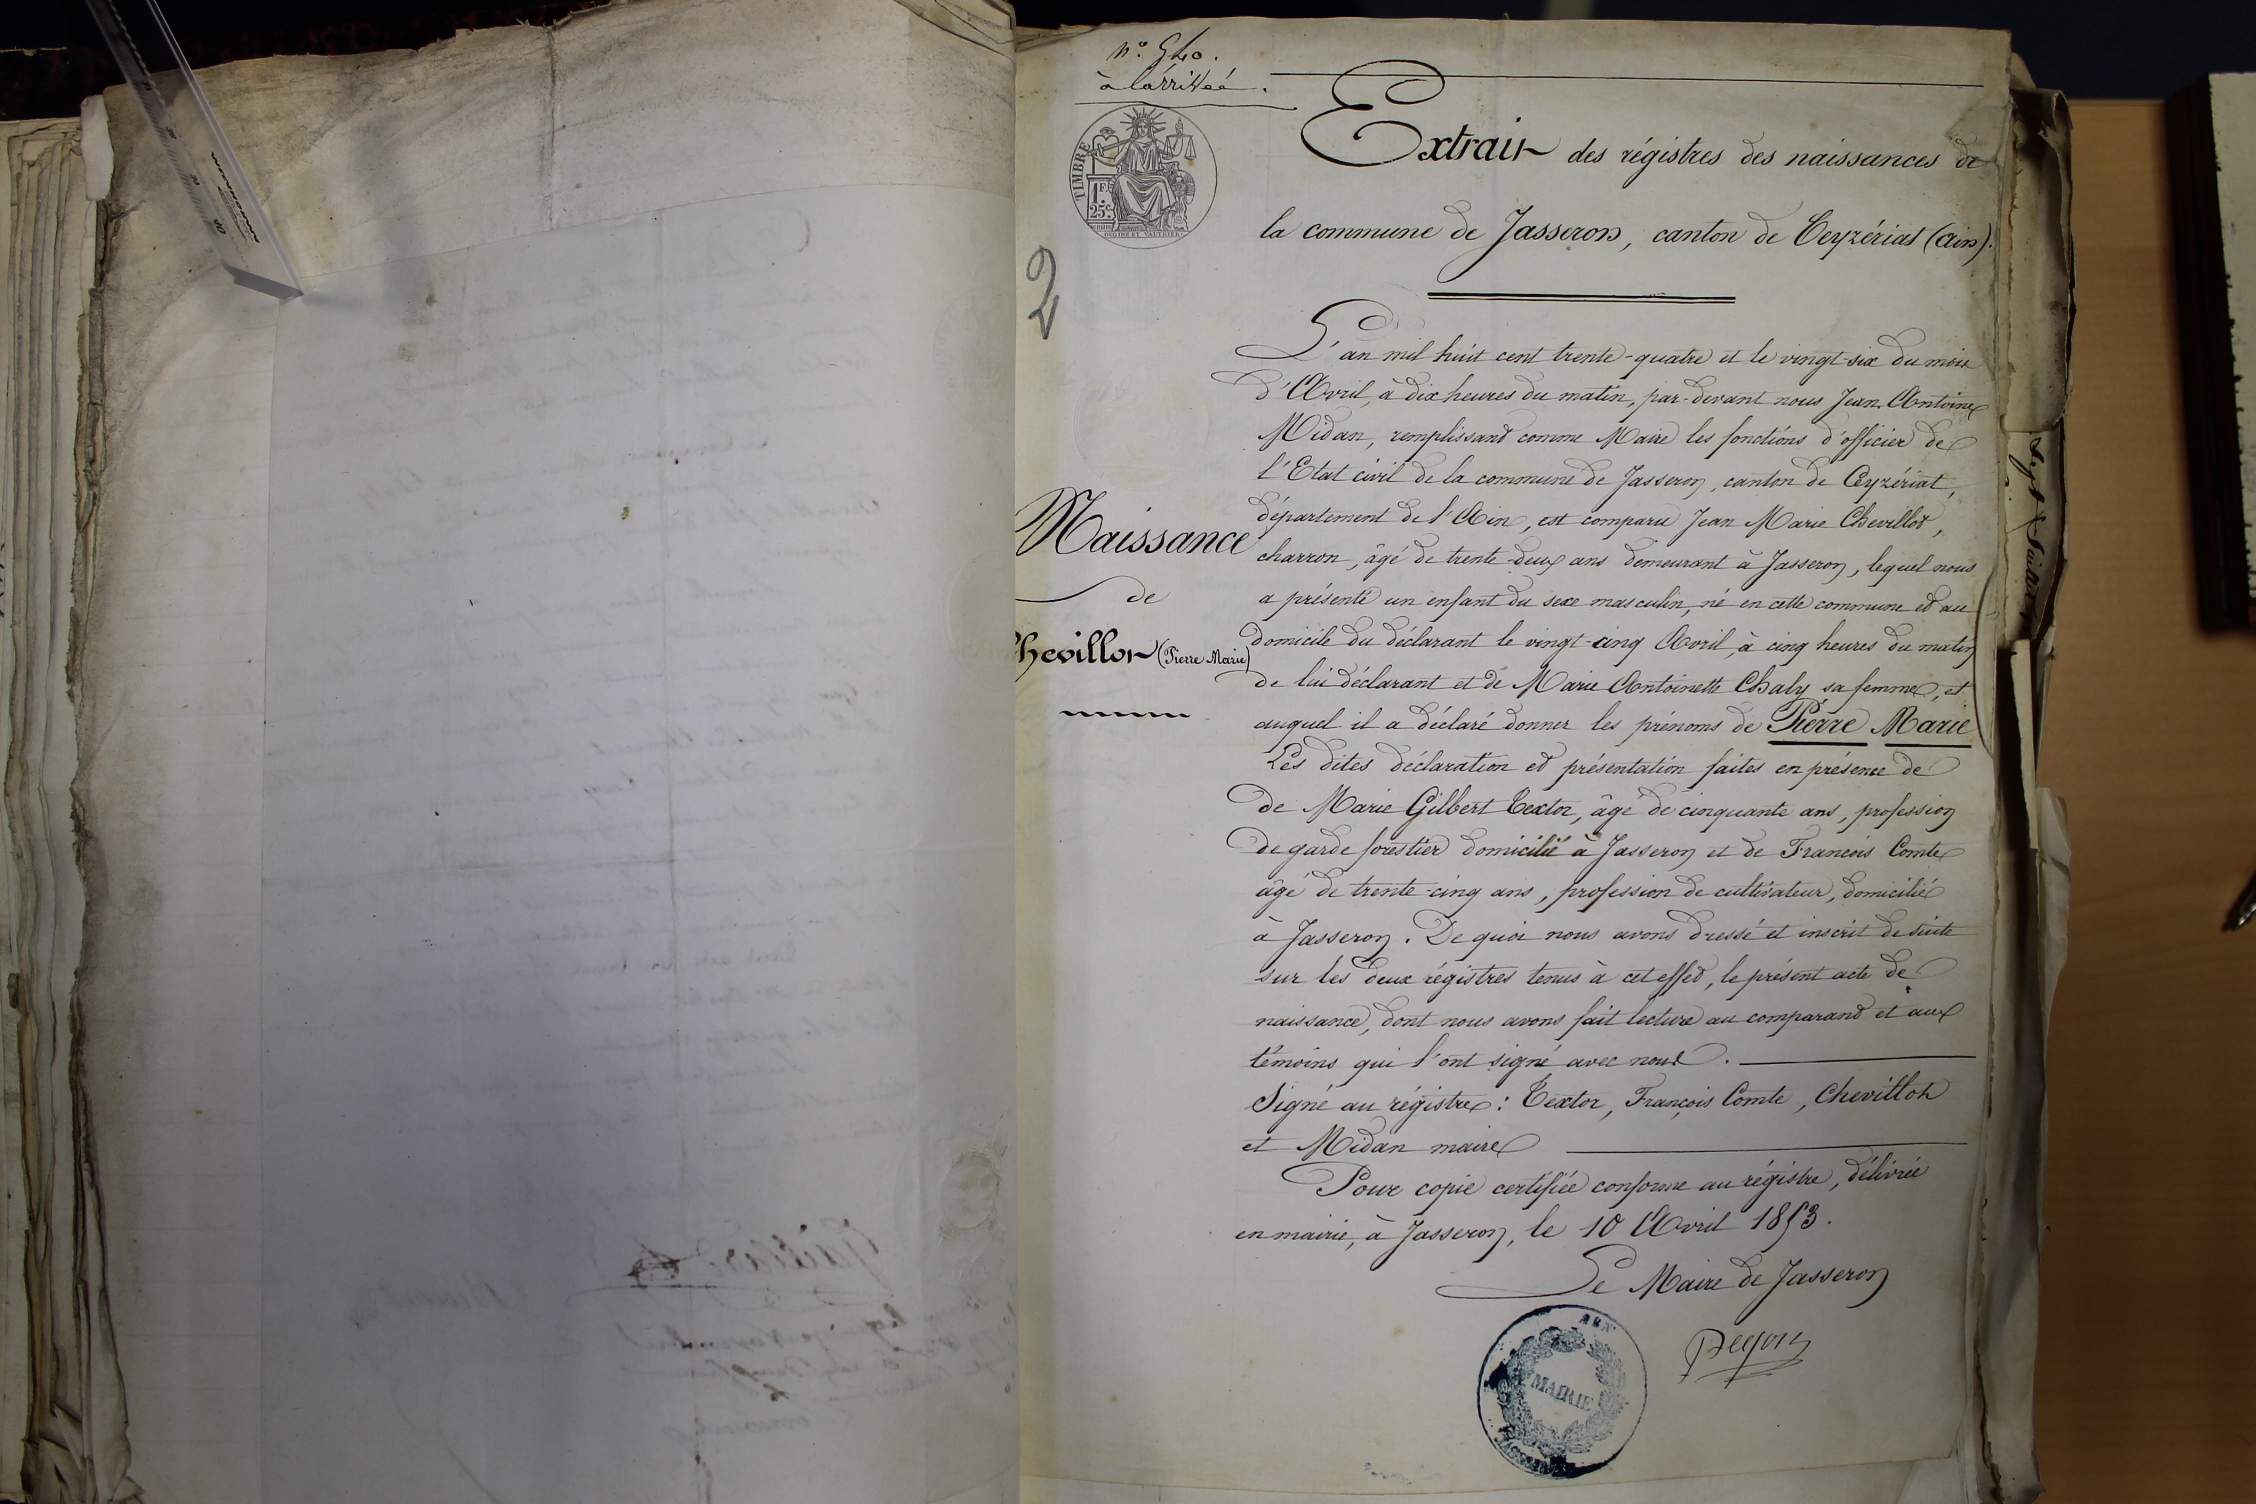 N.° 540.
à l'arrivée.
TIMBRE
1 F.
25 c.
Extrait des régistres des naissances de
la commune de Jasseron, canton de Ceyzériat (Ain).
2
L'an mil huit cent trente-quatre et le vingt-six du mois
d'Avril, à dix heures du matin, par-devant nous Jean Antoine
Midan, remplissant comme Maire les fonctions d'officier de
l'Etat civil de la commune de Jasseron, canton de Ceyzériat,
département de l'Ain, est comparu Jean Marie Chevillot,
charron, âgé de trente-deux ans demeurant à Jasseron, lequel nous
a présenté un enfant du sexe masculin, né en cette commune et au
domicile du déclarant le vingt-cinq Avril, à cinq heures du matin
de lui déclarant et de Marie Antoinette Chaly sa femme, et
auquel il a déclaré donner les prénoms de Pierre Marie
Les dites déclaration et présentation faites en présence de
de Marie Gilbert Textor, âgé de cinquante ans, profession
de garde forestier domicilié à Jasseron et de Francois Comte
âgé de trente-cinq ans, profession de cultivateur, domicilié
à Jasseron. De quoi nous avons dressé et inscrit de suite
sur les deux régistres tenus à cet effet, le présent acte de
naissance, dont nous avons fait lecture au comparant et aux
témoins qui l'ont signé avec nous.
Signé au régistre: Textor, François Comte, Chevillot
et Midan maire
Pour copie certifiée conforme au régistre, délivrée
en mairie, à Jasseron, le 10 Avril 1853.
Le Maire de Jasseron
Naissance
de
Chevillot (Pierre Marie)
MAIRIE